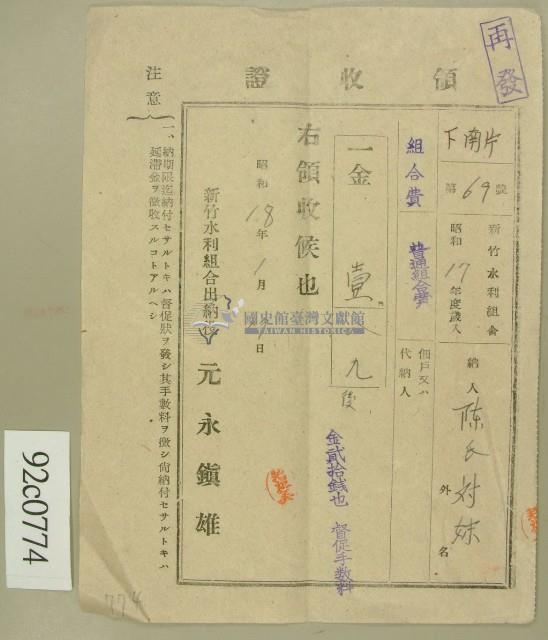 再發
領收證
下南片
第69號
新竹水利組合
昭和17年度歲入
納人 陳氏対妹
外 名
組合費
普通組合費
佃戶又ハ
代納人
一金 壹円 九
後
金貳拾錢也 督促手數料
右領收候也
昭和18年1月 日
新竹水利組合出納役 元永鎭雄
注意
一、納期限迄納付セサルトキハ督促狀ヲ發シ其手數料ヲ徵シ尙納付セサルトキハ
延滯金ヲ徵收スルコトアルヘシ
國史館臺灣文獻館
TAIWAN HISTORICA
92c0774
774